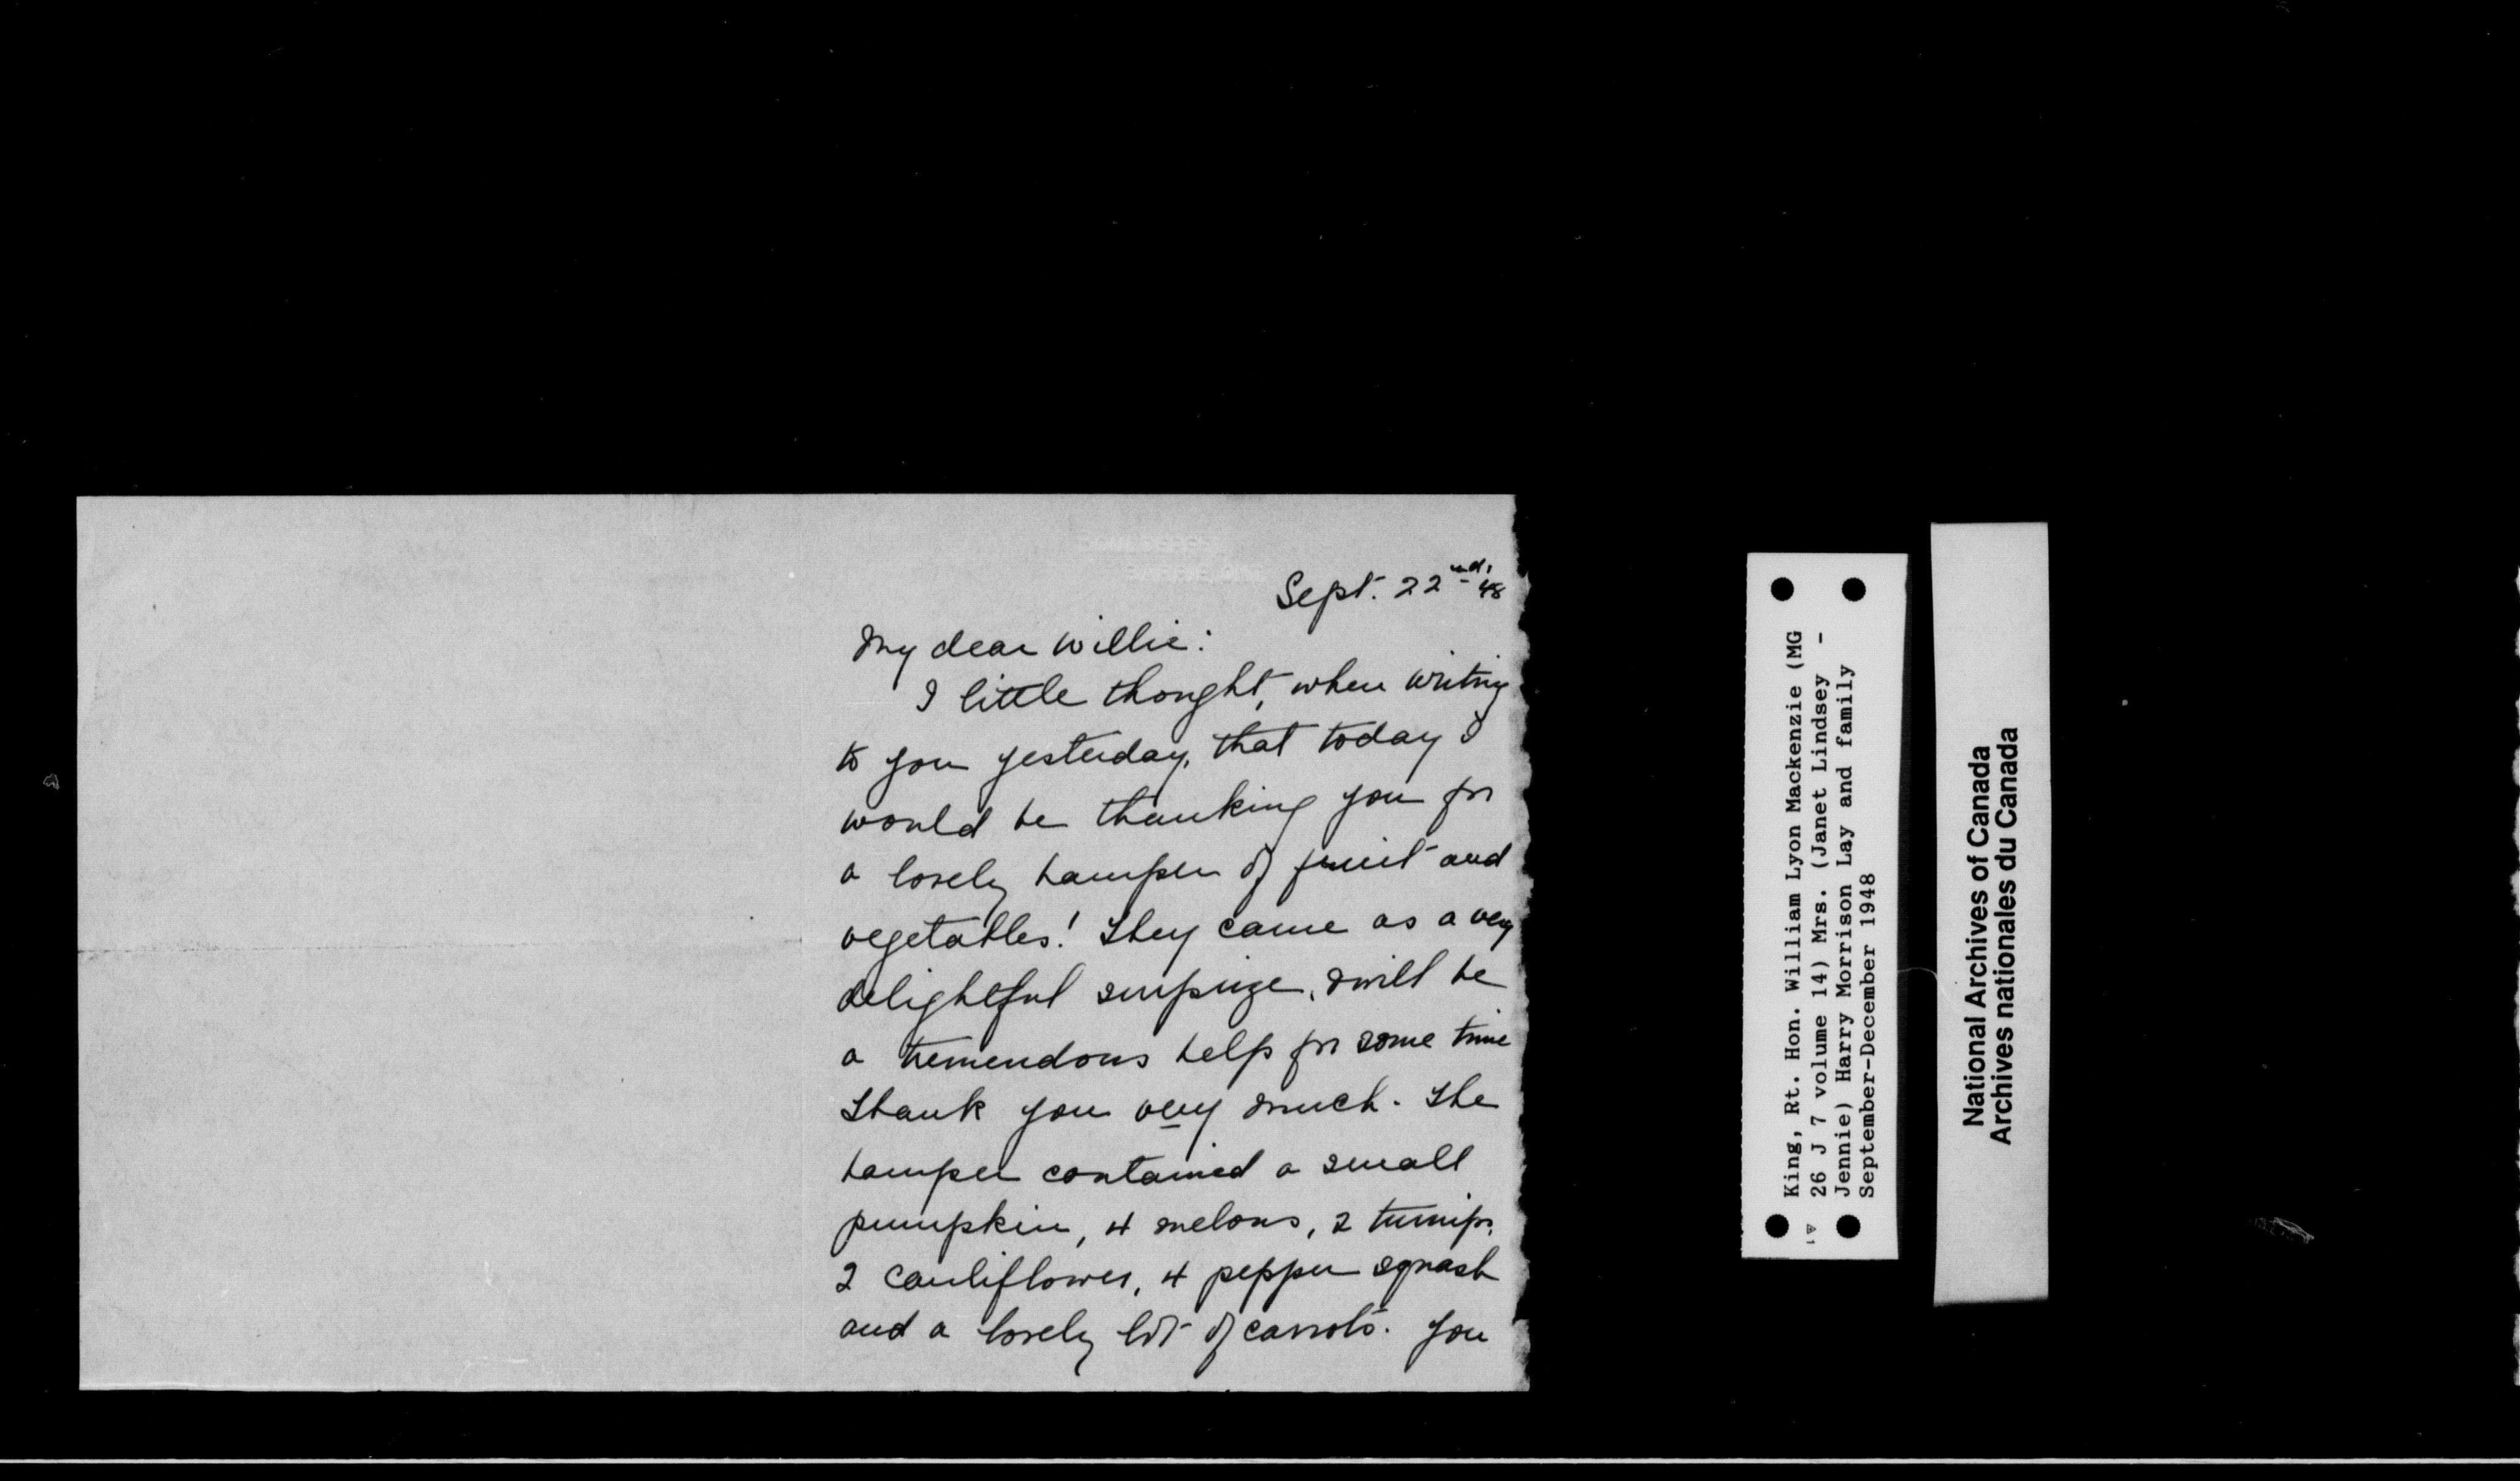 Sept. 22nd, 48
My dear Willie:
I little thought, when writing
to you yesterday, that today I
would be thanking you for
a lovely hamper of fruit and
vegetables! They came as a very
delightful surprize, & will be
a tremendous help for some time
Thank you very much. The
hamper contained a small
pumpkin, 4 melons, 2 turnips,
2 cauliflower, 4 pepper squash
and a lovely lot of carrots. You
King, Rt. Hon. William Lyon Mackenzie (MG
26 J 7 volume 14) Mrs. (Janet Lindsey -
Jennie) Harry Morrison Lay and family
September-December 1948
National Archives of Canada
Archives nationales du Canada